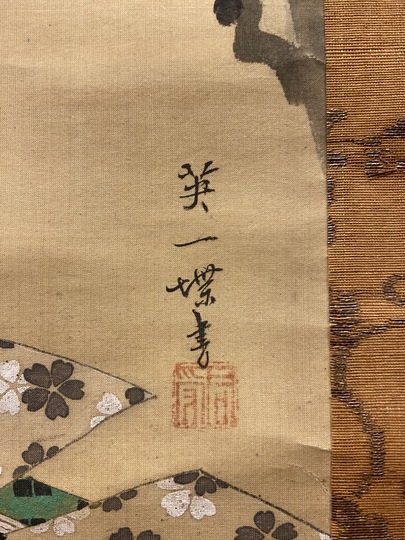 英一蝶書